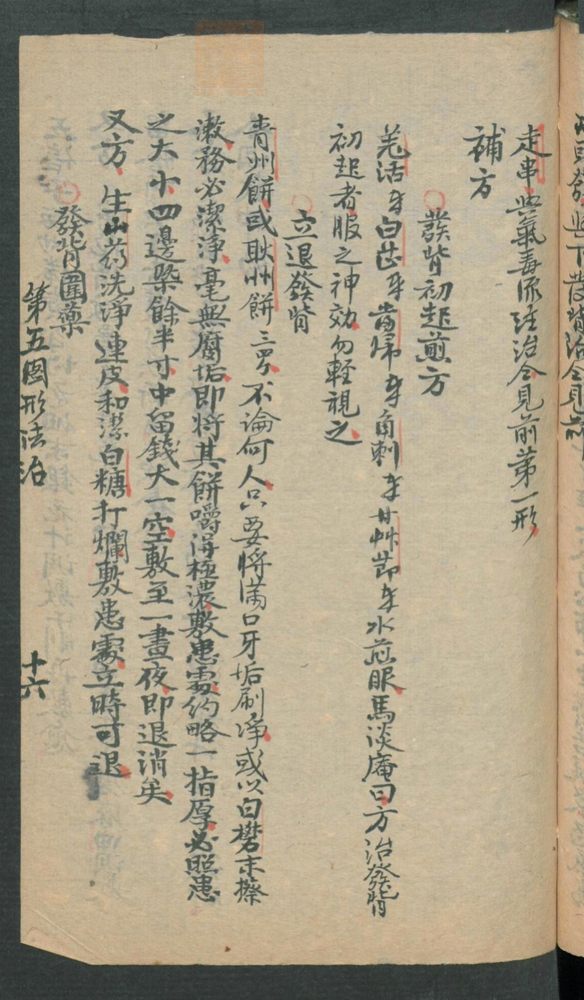 走串與氣毒流注治仝見前第一形
補方
發背初起煎方
羌活白芷當歸角刺甘艸節水煎服馬淡庵曰方治發背
初起者服之神效勿輕視之
立退發背
青州餅或耿州餅三四不論何人只要將滿口牙垢刷淨或以白礬末擦
漱務必潔淨毫無腐垢即將其餅嚼得極濃敷患處約略一指厚必照患
之大小四邊染餘半寸中留錢大一空敷至一晝夜即退消矣
又方生山葯洗淨連皮和潔白糖打爛敷患處立時可退
發背圍藥
第五圖形法治
十六